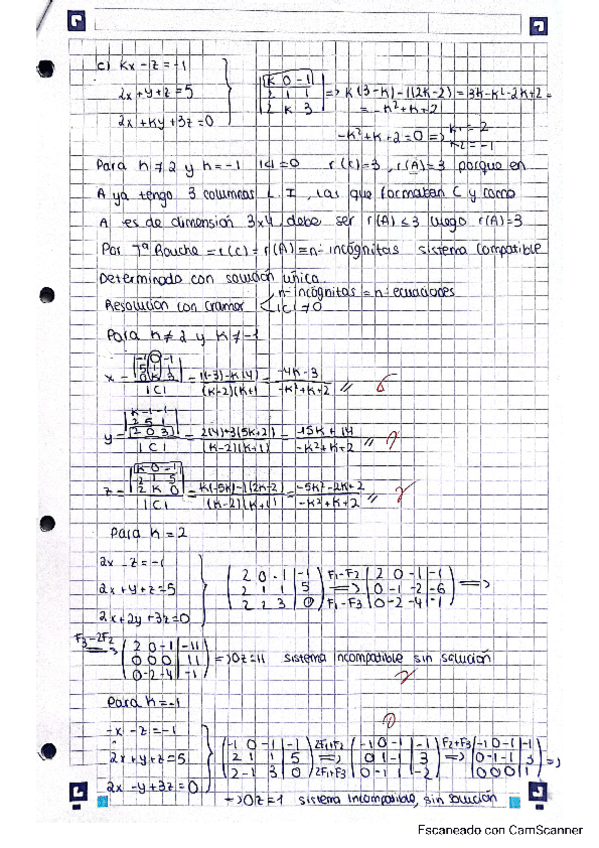 c) Kx - z = -1
2x + y + z = 5
2x + Ky + 3z = 0
| K 0 -1 |
| 2 1 1 |
| 2 K 3 |
=> K(3-K) - 1(2K-2) = 3K-K²-2K+2 =
= -K²+K+2
-K²+K+2=0 => K1 = 2
K2 = -1
Para K ≠ 2 y K = -1 |C| = 0 r(C)=3, r(A)=3 porque en
A ya tengo 3 columnas L.I, las que formaban C y como
A es de dimensión 3x4 debe ser r(A) ≤ 3 luego r(A)=3
Por Tª Rouche = r(C) = r(A) = nº incógnitas sistema compatible
Determinado con solución única.
Resolución con Cramer
nº incógnitas = nº ecuaciones
|C| ≠ 0
Para K ≠ 2 y K ≠ -1
x =
| -1 0 -1 |
| 5 1 1 |
| 0 K 3 |
|C|
= 1(-3)-K(4)
(K-2)(K+1
= -4K-3
-K²+K+2
y =
| K -1 -1 |
| 2 5 1 |
| 2 0 3 |
|C|
= 2(4)+3(5K+2)
(K-2)(K+1)
= 15K+14
-K²+K+2
z =
| K 0 -1 |
| 2 1 5 |
| 2 K 0 |
|C|
= K(-5K)-1(2K-2)
(K-2)(K+1)
= -5K²-2K+2
-K²+K+2
Para K = 2
2x - z = -1
2x + y + z = 5
2x + 2y + 3z = 0
2 0 -1 | -1
2 1 1 | 5
2 2 3 | 0
F1-F2
=>
F1-F3
2 0 -1 | -1
0 -1 -2 | -6
0 -2 -4 | -1
=>
F3-2F2
=>
2 0 -1 | -11
0 0 0 | 11
0 -2 -4 | -1
=> 0z = 11 sistema incompatible sin solución
Para K = -1
-x - z = -1
2x + y + z = 5
2x - y + 3z = 0
-1 0 -1 | -1
2 1 1 | 5
2 -1 3 | 0
2F1+F2
=>
2F1+F3
-1 0 -1 | -1
0 1 -1 | 3
0 -1 1 | -2
F2+F3
=>
-1 0 -1 | -1
0 -1 -1 | 3
0 0 0 | 1
=>
-> 0z = 1 sistema incompatible, sin solución
Escaneado con CamScanner